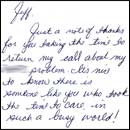 Just a note of thanks
for you taking the time to
return my call about my
problem. It's nice
to know there is
someone like you who took
the time to care, in
such a busy world!